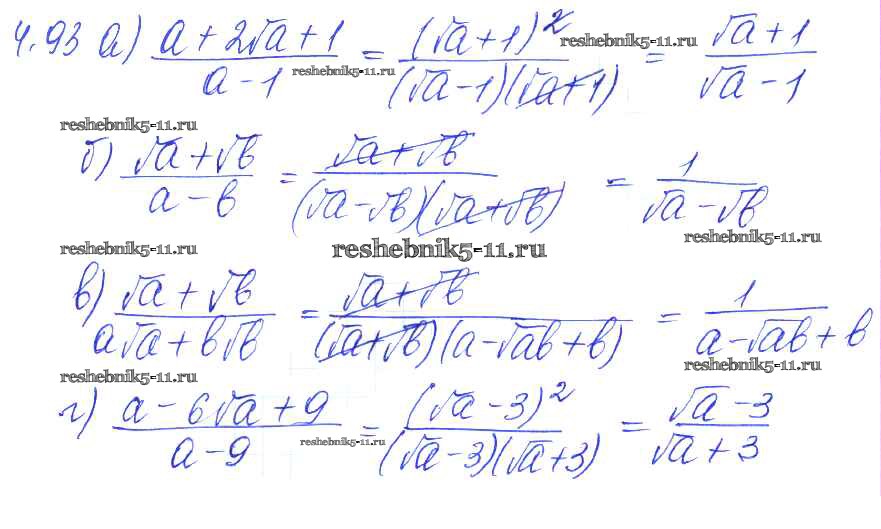 4.93 а) (a + 2√a + 1)/(a − 1) = (√a + 1)²/((√a − 1)(√a + 1)) = (√a + 1)/(√a − 1)
reshebnik5-11.ru reshebnik5-11.ru
reshebnik5-11.ru
б) (√a + √b)/(a − b) = (√a + √b)/((√a − √b)(√a + √b)) = 1/(√a − √b)
reshebnik5-11.ru reshebnik5-11.ru reshebnik5-11.ru
в) (√a + √b)/(a√a + b√b) = (√a + √b)/((√a + √b)(a − √ab + b)) = 1/(a − √ab + b)
reshebnik5-11.ru reshebnik5-11.ru
г) (a − 6√a + 9)/(a − 9) = (√a − 3)²/((√a − 3)(√a + 3)) = (√a − 3)/(√a + 3)
reshebnik5-11.ru